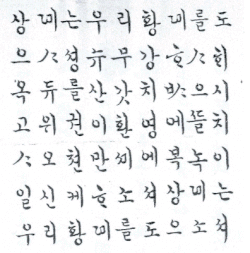 상뎨는우리황뎨를도
으ᄉᆞ셩슈무강ᄒᆞᄉᆞᄒᆡ
옥듀를산갓치ᄡᆞ으시
고위권이환영에ᄯᅳᆯ치
ᄉᆞ오쳔만셰에복녹이
일신케ᄒᆞ소셔상뎨는
우리황뎨를도으소셔